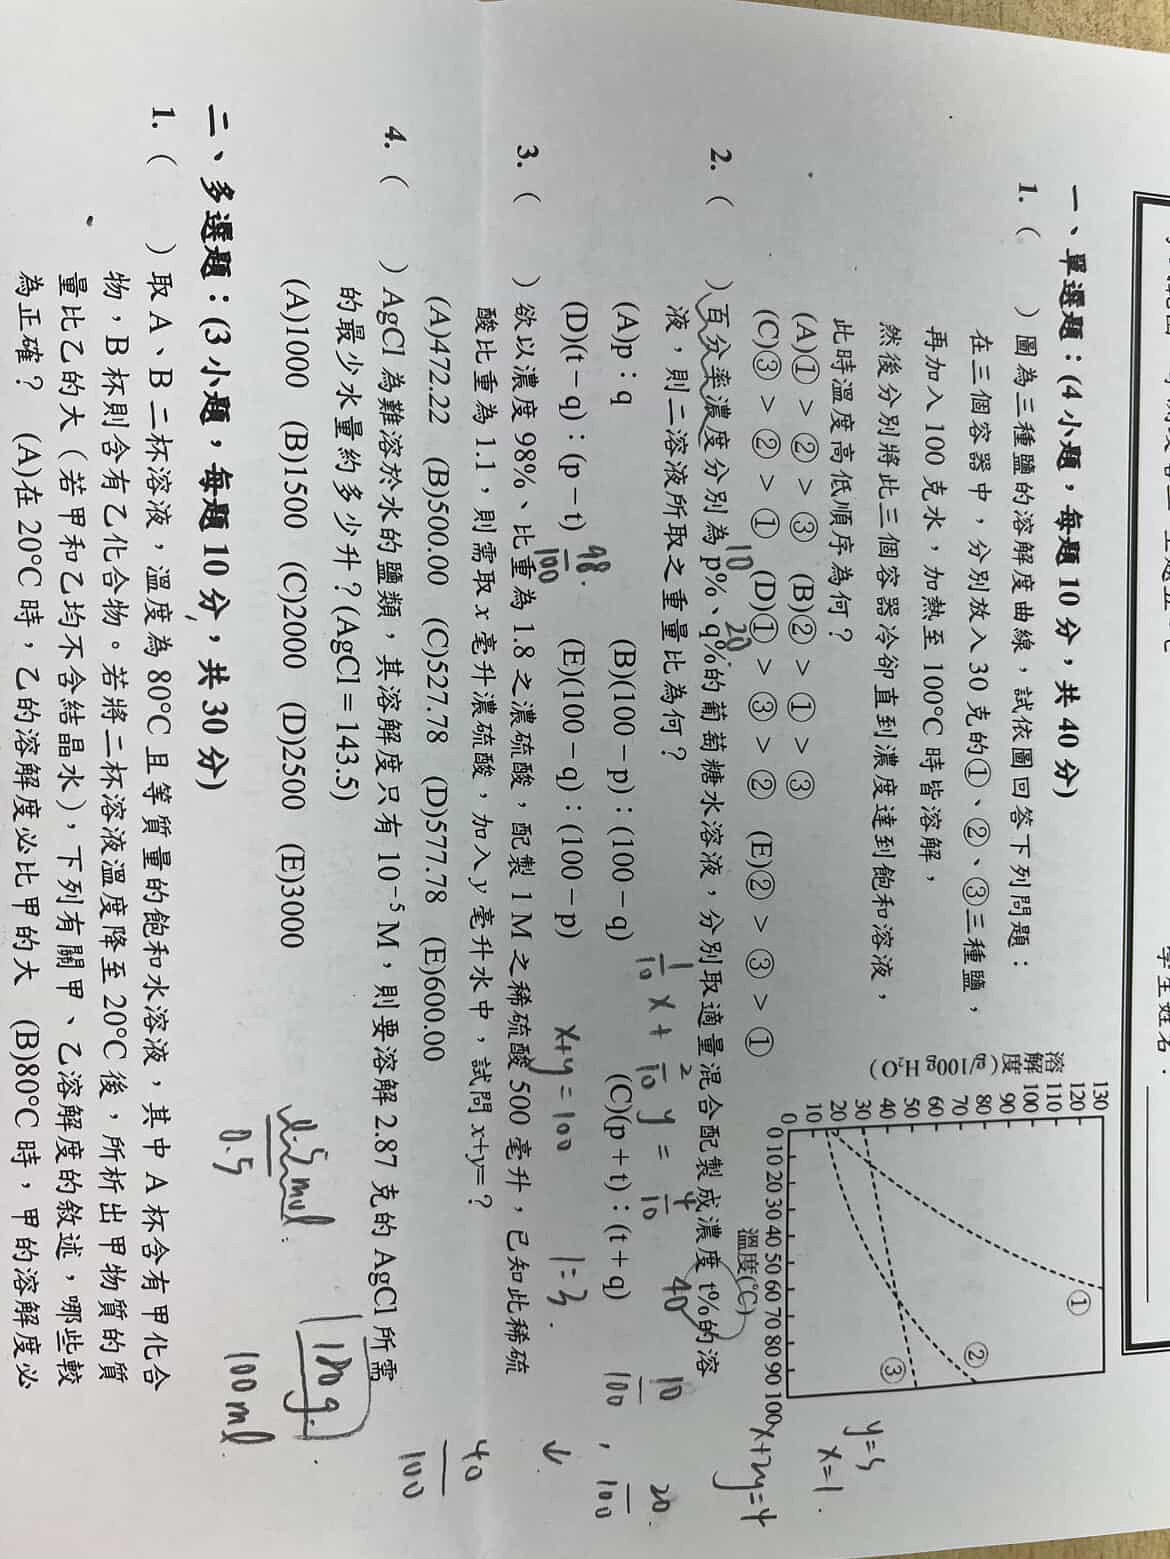 學生姓名：
一、單選題：(4 小題，每題 10 分，共 40 分)
1. (　　) 圖為三種鹽的溶解度曲線，試依圖回答下列問題：
在三個容器中，分別放入 30 克的①、②、③三種鹽，
再加入 100 克水，加熱至 100°C 時皆溶解，
然後分別將此三個容器冷卻直到濃度達到飽和溶液，
此時溫度高低順序為何？
(A)① > ② > ③　(B)② > ① > ③
(C)③ > ② > ①　(D)① > ③ > ②　(E)② > ③ > ①
溶解度(g/100g H₂O)
130
120
110
100
90
80
70
60
50
40
30
20
10
0
0 10 20 30 40 50 60 70 80 90 100
溫度(°C)
①
②
③
y=3
x=1.
x+2y=4
2. (　　) 百分率濃度分別為 p%、q%的葡萄糖水溶液，分別取適量混合配製成濃度 t%的溶
10 20 40
液，則二溶液所取之重量比為何？
(A)p：q　(B)(100－p)：(100－q)　(C)(p＋t)：(t＋q)
(D)(t－q)：(p－t)　(E)(100－q)：(100－p)
1/10 x + 2/10 y = 4/10
10/100 , 20/100
x+y=100　1=3.
↓
40/100
98/100
3. (　　) 欲以濃度 98%、比重為 1.8 之濃硫酸，配製 1 M 之稀硫酸 500 毫升，已知此稀硫
酸比重為 1.1，則需取 x 毫升濃硫酸，加入 y 毫升水中，試問 x+y=？
(A)472.22　(B)500.00　(C)527.78　(D)577.78　(E)600.00
4. (　　) AgCl 為難溶於水的鹽類，其溶解度只有 10⁻⁵ M，則要溶解 2.87 克的 AgCl 所需
的最少水量約多少升？(AgCl＝143.5)
(A)1000　(B)1500　(C)2000　(D)2500　(E)3000
0.5
100ml
二、多選題：(3 小題，每題 10 分，共 30 分)
1. (　　) 取 A、B 二杯溶液，溫度為 80°C 且等質量的飽和水溶液，其中 A 杯含有甲化合
物，B 杯則含有乙化合物。若將二杯溶液溫度降至 20°C 後，所析出甲物質的質
量比乙的大（若甲和乙均不含結晶水），下列有關甲、乙溶解度的敘述，哪些較
為正確？　(A)在 20°C 時，乙的溶解度必比甲的大　(B)80°C 時，甲的溶解度必